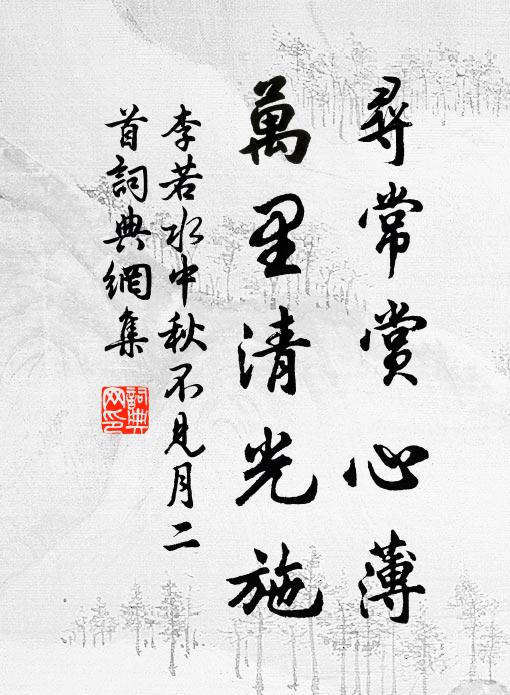 尋常賞心薄
萬里清光施
李若水中秋不見月二
首詞典網集
詞典网印